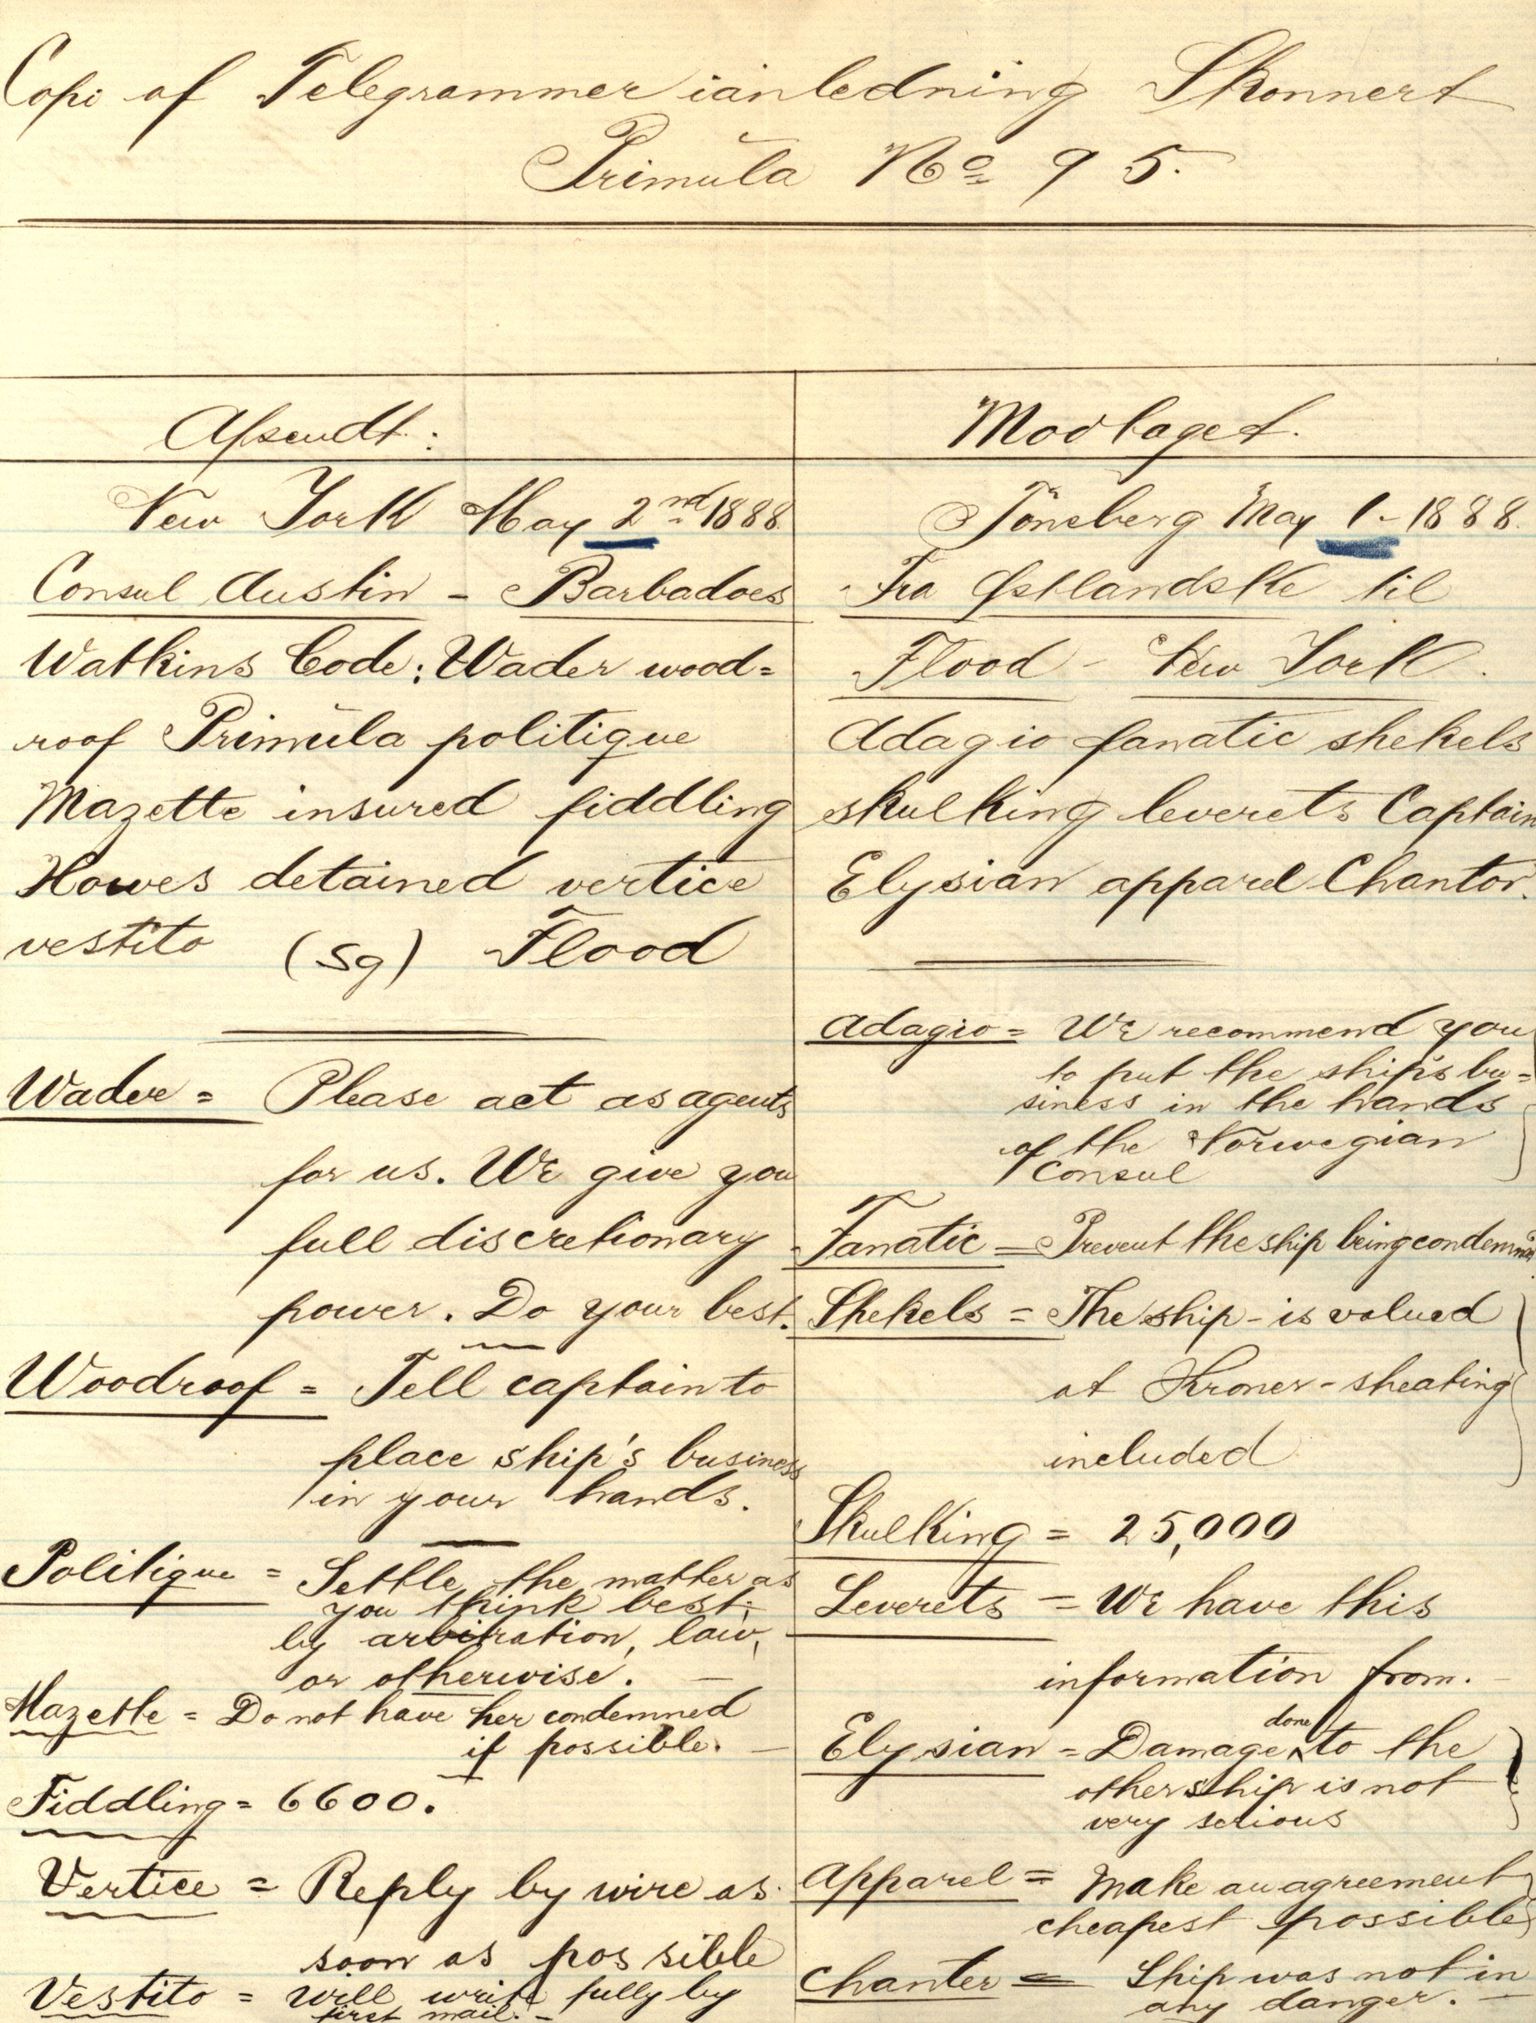 Copi af Telegrammer ianledning Skonnert
Primula No 95.
Afsendt:
New York May 2nd 1888
Consul Austin - Barbadoes
Watkins Code: Wader wood=
roof Primula politique
Mazette insured fiddling
Howes detained vertice
vestito (sg) Flood
Wader = Please act as agents
for us. We give you
full discretionary
power. Do your best.
Woodroof = Tell captain to
place ship's business
in your hands.
Politique = Settle the matter as
you think best;
by arbitration, law,
or otherwise. -
Mazette = Do not have her condemned
if possible. -
Fiddling = 6600.
Vertice = Reply by wire as
soon as possible
Vestito = will write fully by
first mail. -
Modtaget.
Tönsberg May 1 - 1888.
Fra Østlandske til
Flood - New York.
Adagio fanatic shekels
skulking leverets Captain
Elysian apparel Chantor.
Adagio = We recommend you
to put the ship's bu=
siness in the hands
of the Norwegian
Consul
Fanatic = Prevent the ship being condemned
Shekels = The ship - is valued
at Kroner - sheating
included
Skulking = 25,000
Leverets = We have this
information from. -
Elysian = Damage done to the
other ship is not
very serious
Apparel = Make an agreement
cheapest possible
Chanter = Ship was not in
any danger. -